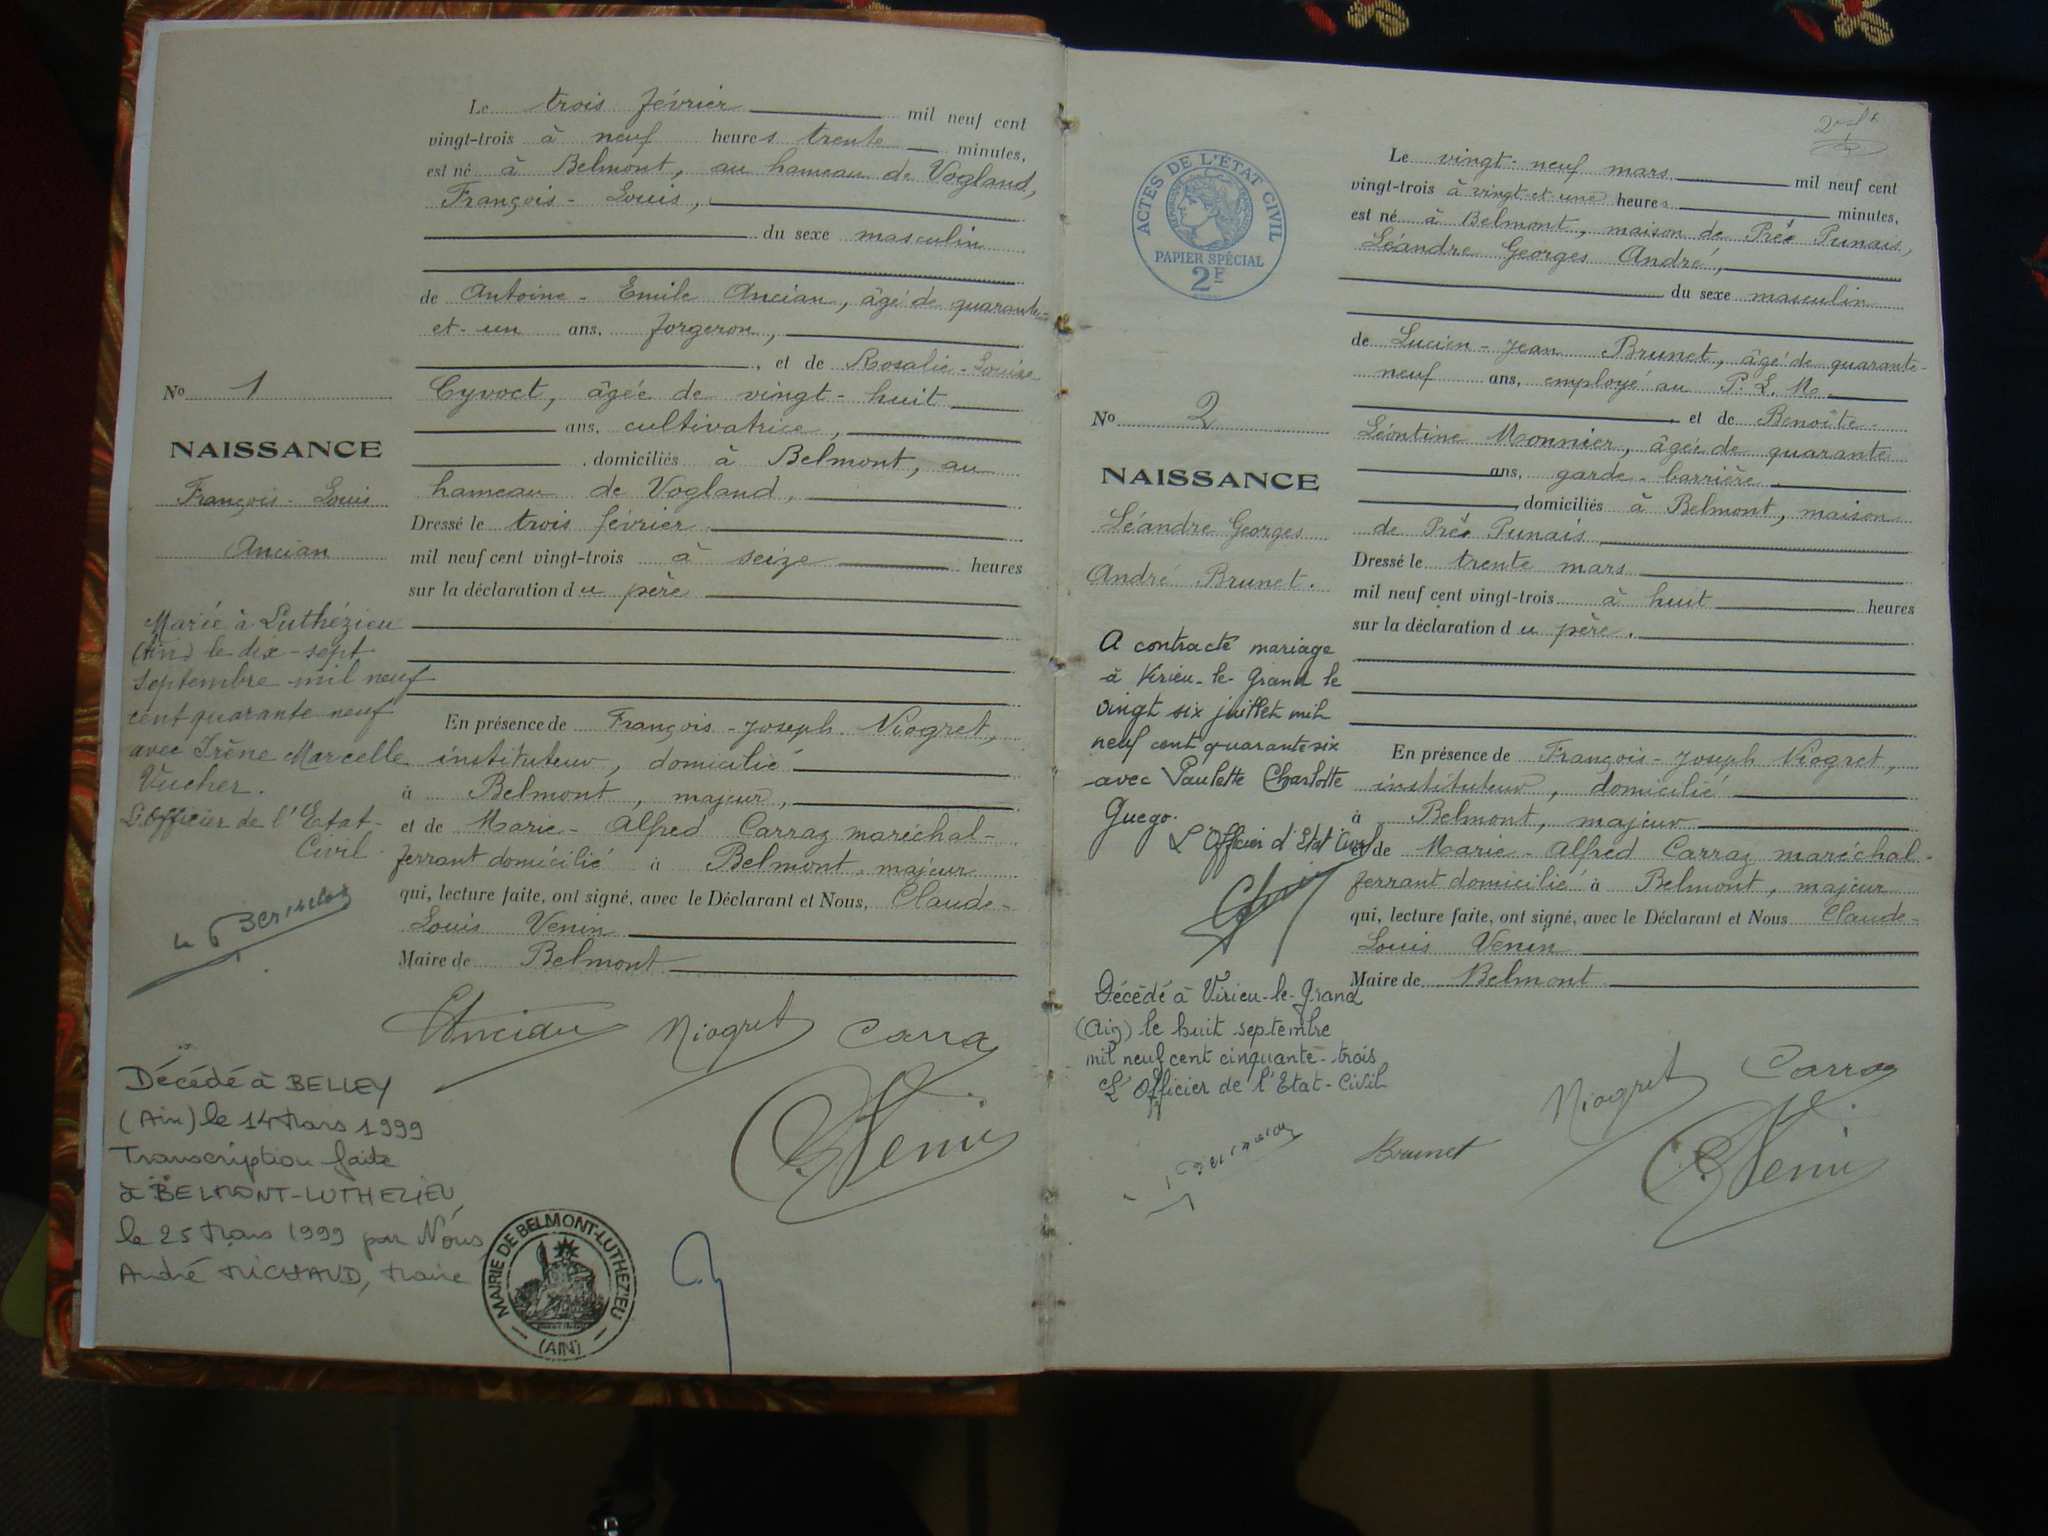 Le trois février mil neuf cent
vingt-trois à neuf heures trente minutes,
est né à Belmont, au hameau de Vogland,
François-Louis,
du sexe masculin
de Antoine-Emile Ancian, âgé de quarante-
et-un ans, forgeron,
, et de Rosalie-Louise
Cyvoct, âgée de vingt-huit
ans, cultivatrice,
, domiciliés à Belmont, au
hameau de Vogland,
Dressé le trois février
mil neuf cent vingt-trois à seize heures
sur la déclaration du père
En présence de François-Joseph Niogret,
instituteur, domicilié
à Belmont, majeur,
et de Marie-Alfred Carraz maréchal-
ferrant domicilié à Belmont, majeur
qui, lecture faite, ont signé, avec le Déclarant et Nous, Claude-
Louis Venin
Maire de Belmont
Ancian Niogret Carraz
Venin
No 1
NAISSANCE
François-Louis
Ancian
Marié à Luthézieu
(Ain) le dix-sept
septembre mil neuf
cent quarante neuf
avec Irène Marcelle
Vucher.
L'Officier de l'Etat-
Civil
Décédé à BELLEY
(Ain) le 14 Mars 1999
Transcription faite
à BELMONT-LUTHEZIEU
le 25 Mars 1999 par Nous
André MICHAUD, Maire
MAIRIE DE BELMONT-LUTHEZIEU
(AIN)
ACTES DE L'ÉTAT CIVIL
PAPIER SPÉCIAL
2F
Le vingt-neuf mars mil neuf cent
vingt-trois à vingt-et-une heures minutes,
est né à Belmont, maison de Prés Punais,
Léandre Georges André,
du sexe masculin
de Lucien-Jean Brunet, âgé de quarante-
neuf ans, employé au P. L. M.
, et de Benoîte-
Léontine Monnier, âgée de quarante
ans, garde-barrière
, domiciliés à Belmont, maison
de Prés Punais
Dressé le trente mars
mil neuf cent vingt-trois à huit heures
sur la déclaration du père.
En présence de François-Joseph Niogret,
instituteur, domicilié
à Belmont, majeur
et de Marie-Alfred Carraz maréchal-
ferrant domicilié à Belmont, majeur
qui, lecture faite, ont signé, avec le Déclarant et Nous Claude-
Louis Venin
Maire de Belmont
Niogret Carraz
Brunet Venin
No 2
NAISSANCE
Léandre Georges
André Brunet.
A contracté mariage
à Virieu-le-Grand le
vingt six juillet mil
neuf cent quarante six
avec Paulette Charlotte
Guego.
L'Officier d'Etat Civil
Décédé à Virieu-le-Grand
(Ain) le huit septembre
mil neuf cent cinquante-trois
L'Officier de l'Etat-Civil